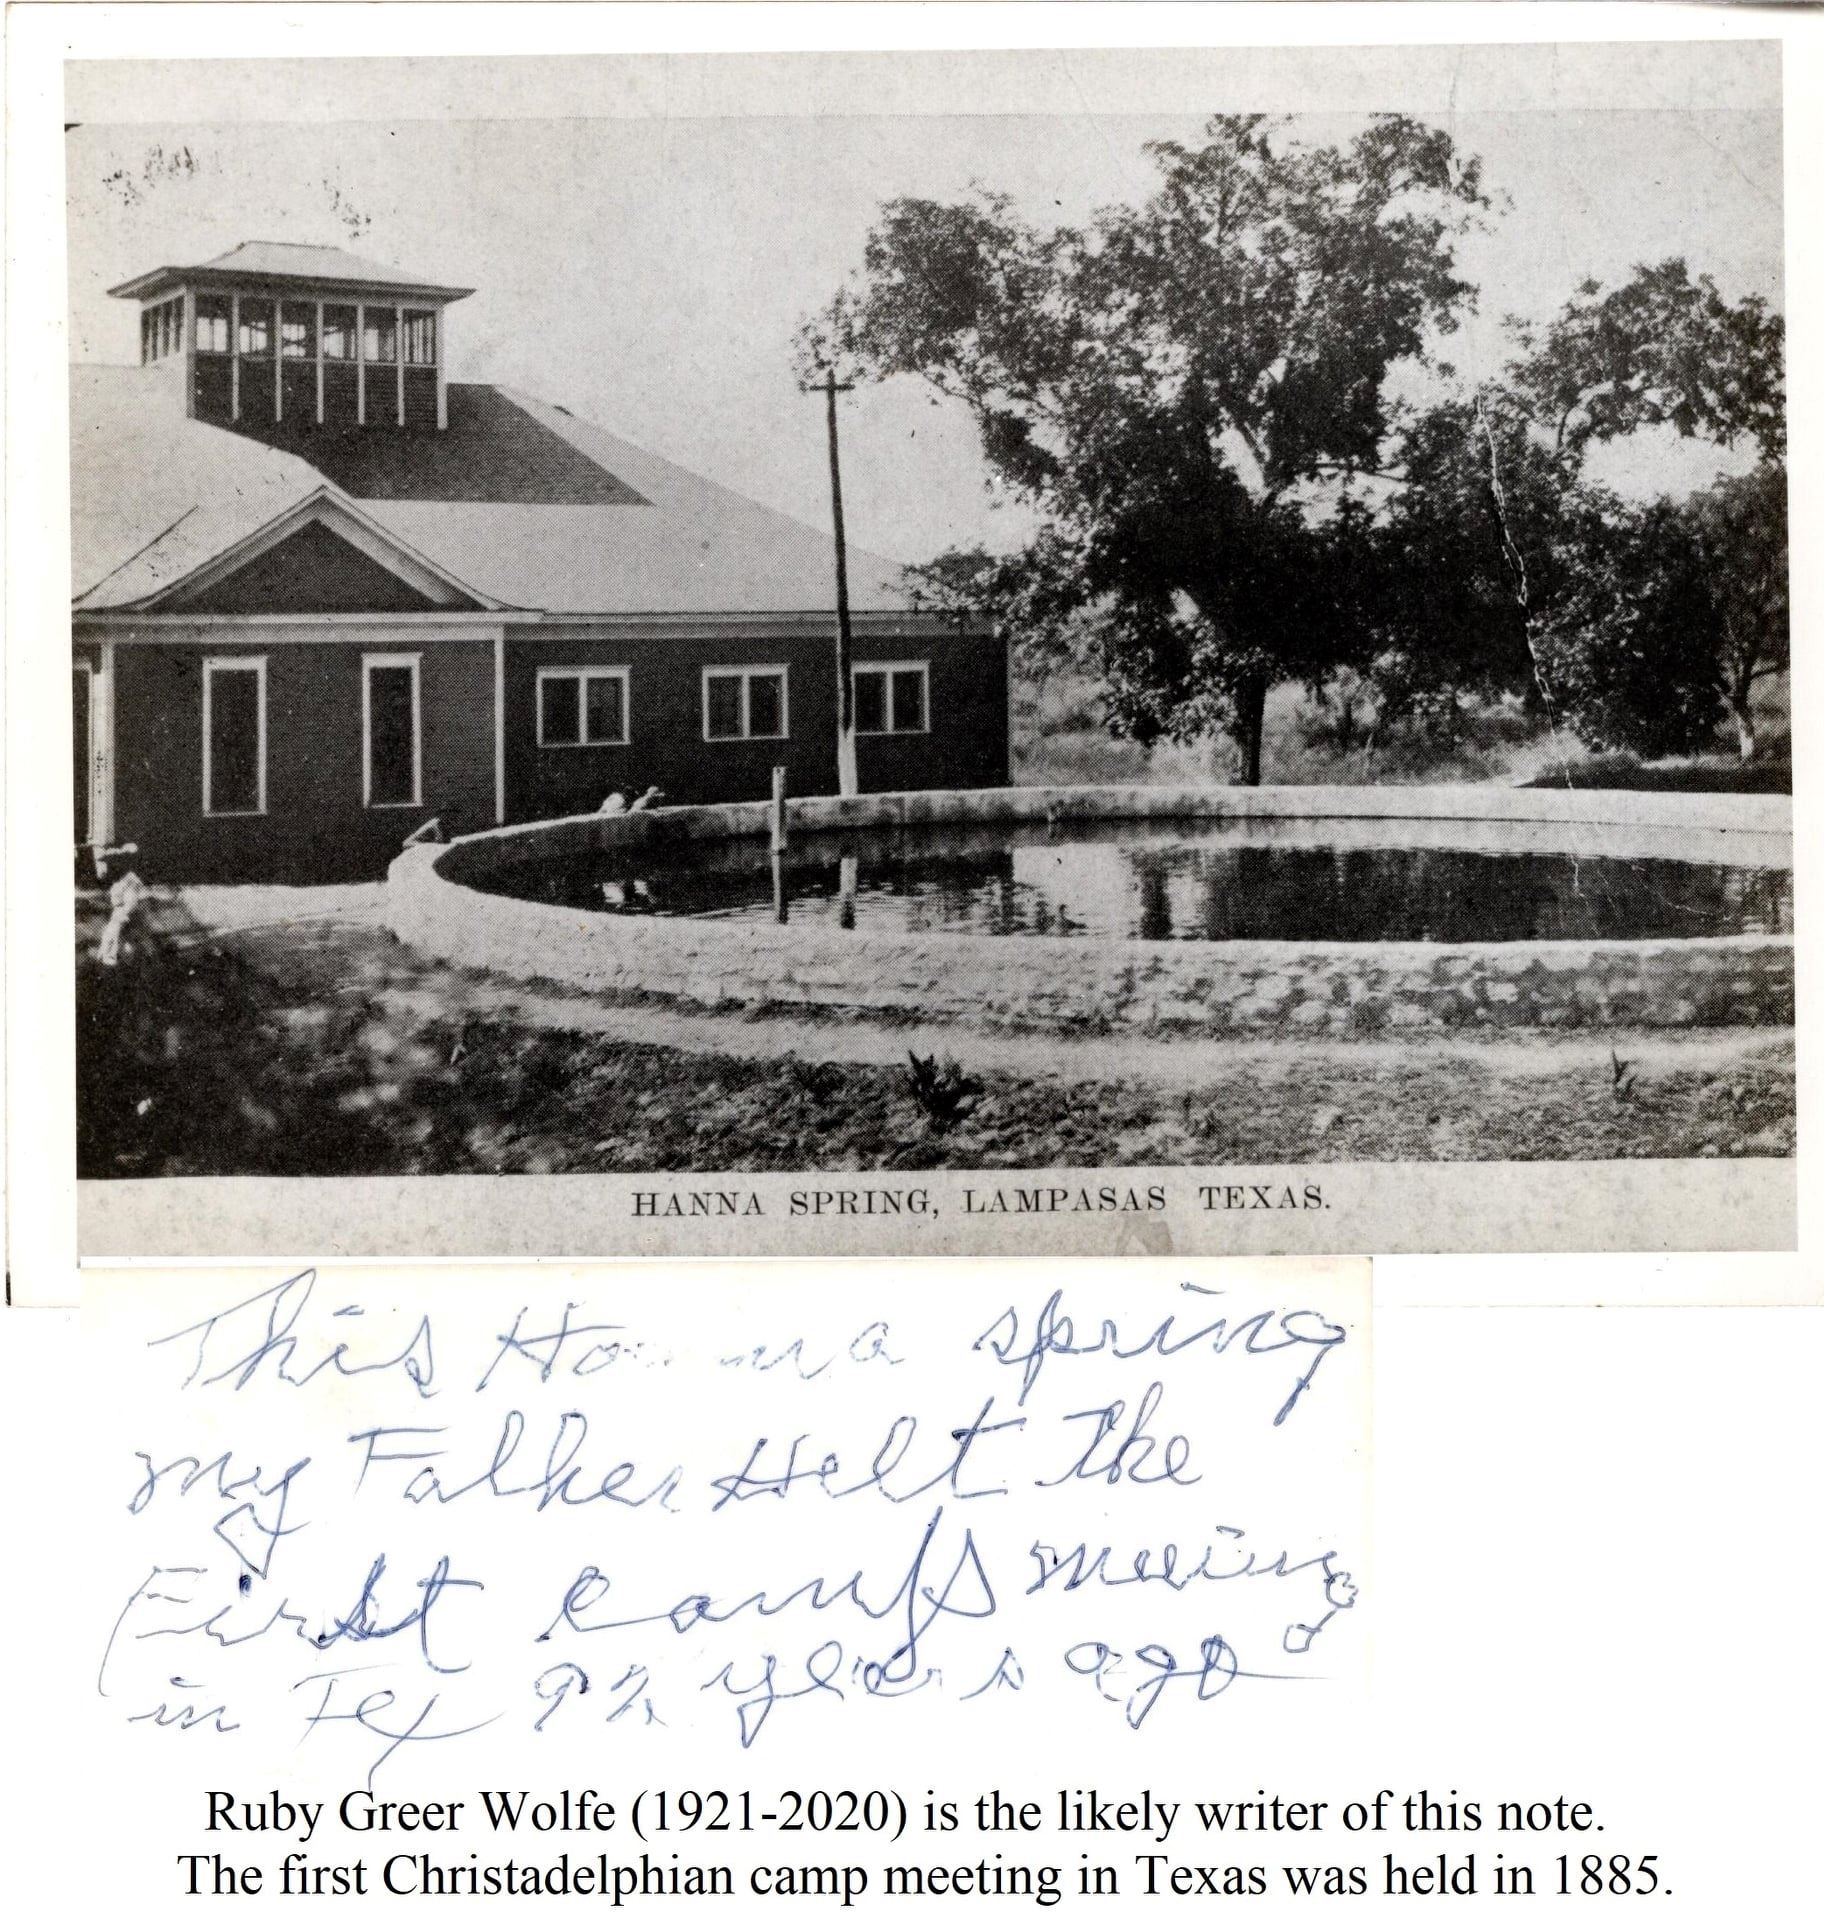 HANNA SPRING, LAMPASAS TEXAS.
This Hanna spring
my Father Helt the
First Camp meeing
in Tex 92 years ago
Ruby Greer Wolfe (1921-2020) is the likely writer of this note.
The first Christadelphian camp meeting in Texas was held in 1885.